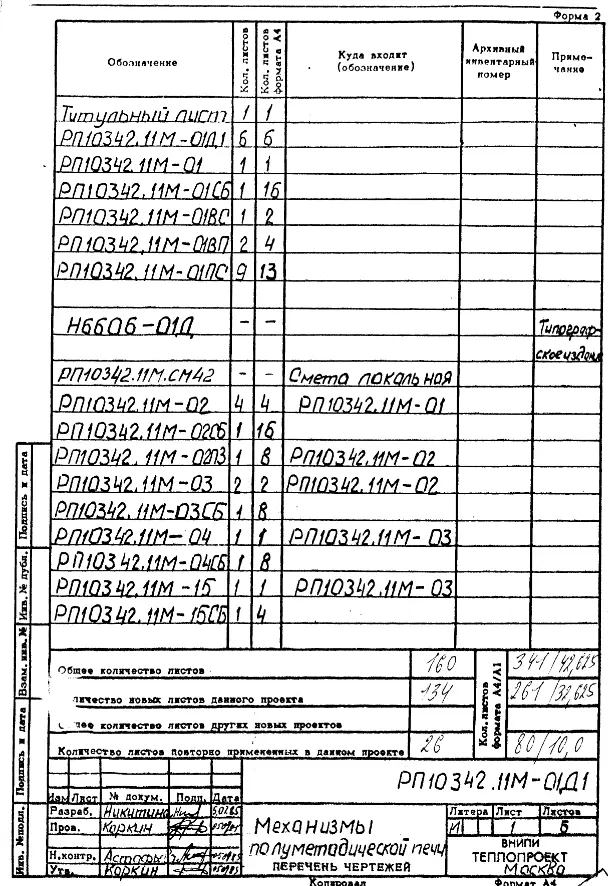 Форма 2
Обозначение Кол. листов Кол. листов формата А4 Куда входит (обозначение) Архивный инвентарный номер Примечание
Титульный лист 1 1
РП10342.11М-01Д1 6 6
РП10342.11М-01 1 1
РП10342.11М-01СБ 1 16
РП10342.11М-01ВС 1 2
РП10342.11М-01ВП 2 4
РП10342.11М-01ПС 9 13
Н6606-01Д - - Типограф-
ское издан
РП10342.11М.СМ42 - - Смета локальная
РП10342.11М-02 4 4 РП10342.11М-01
РП10342.11М-02СБ 1 16
РП10342.11М-02ПЗ 1 8 РП10342.11М-02
РП10342.11М-03 2 2 РП10342.11М-02
РП10342.11М-03СБ 1 8
РП10342.11М-04 1 1 РП10342.11М-03
РП10342.11М-04СБ 1 8
РП10342.11М-15 1 1 РП10342.11М-03
РП10342.11М-15СБ 1 4
Общее количество листов 160 341/42,625
личество новых листов данного проекта 134 261/32,625
щее количество листов других новых проектов
Количество листов повторно примененных в данном проекте 26 80/10,0
Кол. листов формата А4/А1
РП10342.11М-01Д1
Изм Лист № докум. Подп. Дата
Разраб. Никитина
Пров. Коркин
Н.контр.
Утв. Коркин
Механизмы
полуметодической печи
ПЕРЕЧЕНЬ ЧЕРТЕЖЕЙ
Литера Лист Листов
И 1 6
ВНИПИ
ТЕПЛОПРОЕКТ
Москва
Копировал Формат А4
Инв. № подл. Подпись и дата Взам. инв. № Инв. № дубл. Подпись и дата